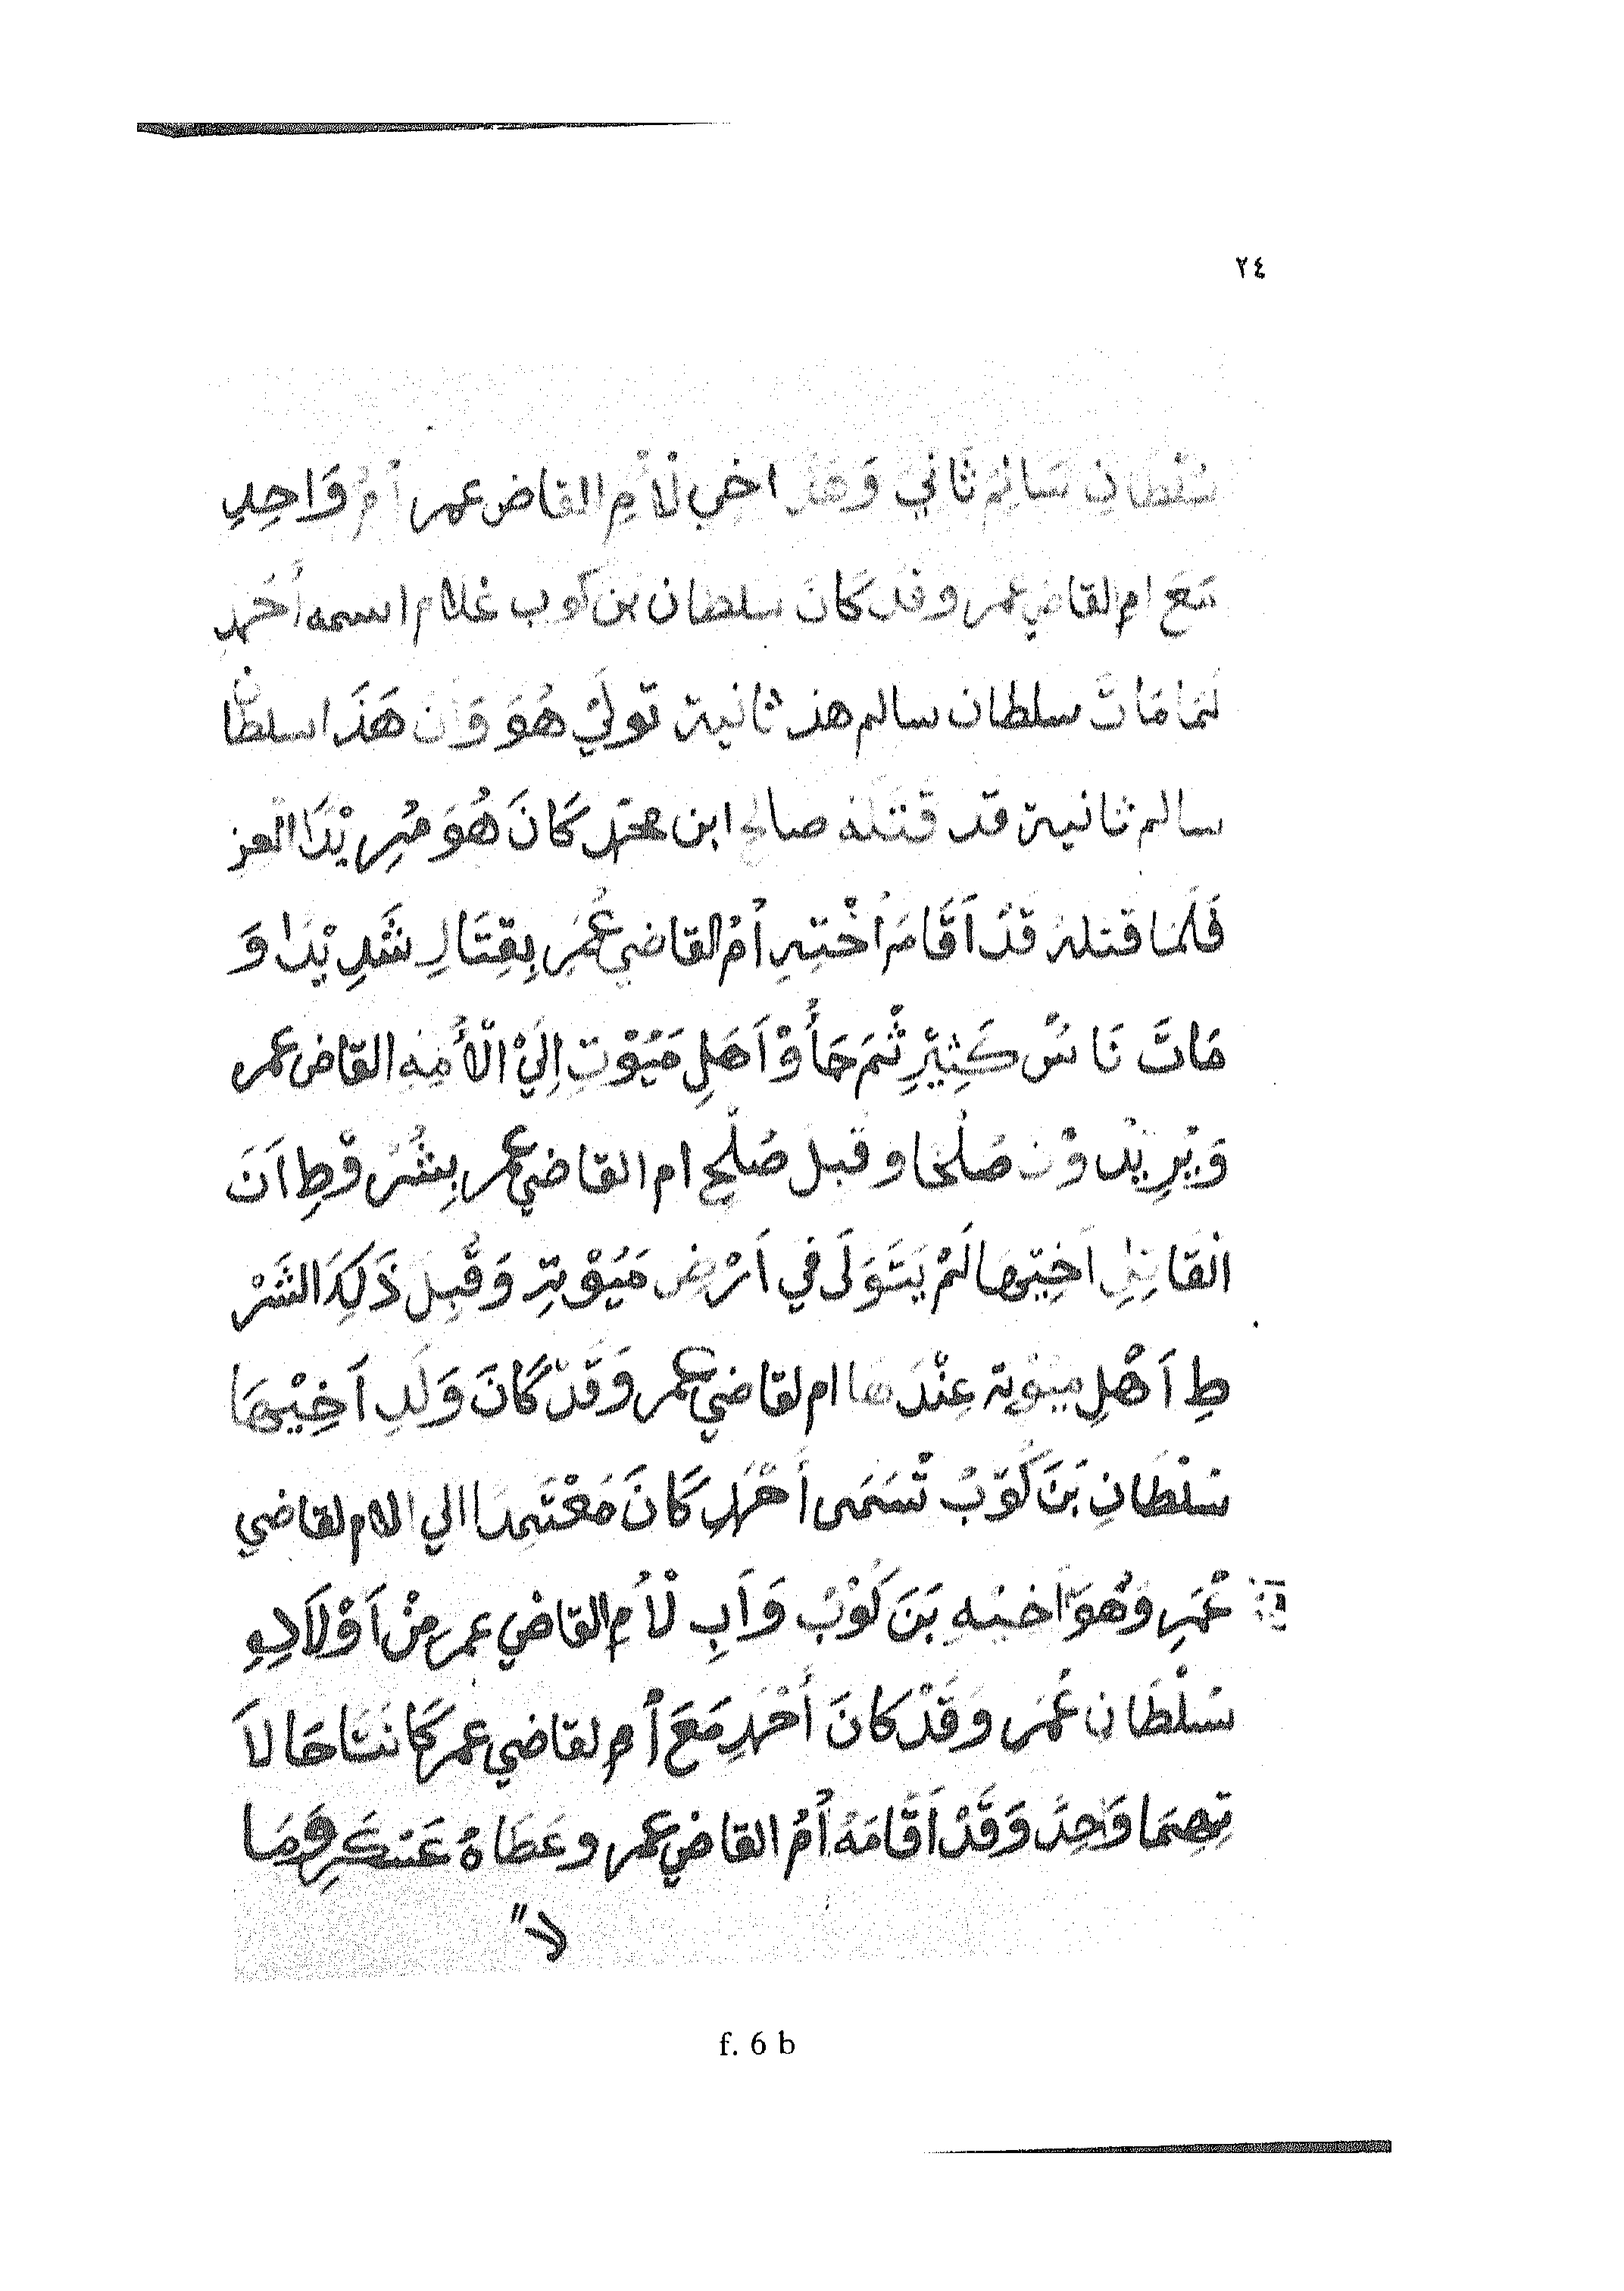 ٢٤
سُلْطَانِ سَالِمْ ثَانِيَ وَهَذَ اخِي لْأُمِ القاض عمر أُمُ وَاحِدِ
مَعَ ام القاضي عمر وقد كَانَ سلطان بن كوب غلام اسمه أَحْمَد
لَمَا مَاتَ سلطان سالم هذ ثانية تولَيْ هُوَ وَاَن هَذَا سلطَان
سالم ثانية قد قتله صالح ابن محمّد كَانَ هُوَ مُرِيْدَا العز
فَلَمَا قتلهُ قَدْ اَقَامَ اُخْتِهِ أمُ القاضي عُمَرِ بِقِتَالِ شَدِيْدَا وَ
مَاتَ نَاسْ كَثِيْرِ ثُمَ جَأُوْ اَهَلِ مَيُوْتِ اِلَيْ الْأُمِهِ القاض عمر
وَيْرِيْدوْن صُلْحا وقبل صُلْحِ ام القاضي عمر بِشُرُوْطِ اَنَ
الْقَاتِلِ اَخِيْهَا لَمْ يَتَوَلَى في اَرْضِ مَيُوْتِ وَقَبِلَ ذَلِكَ الشَرْ
طِ اَهْلِ مَيُوْتِهِ عِنْدَهَا ام لقاضي عمر وَقَدْ كَانَ وَلَدِ اَخِيْهَا
سُلْطَانِ بَنَ كُوْبُ تُسَمَى أَحْمَدِ كَانَ مُعْتَمِدَا الي الام لقاضي
عُمَرِ وَهُوَ اَخيْهِ بَنَ كُوْبُ وَاَبِ لْأُمِ القاضي عمر مِنْ اَوْلَادِهِ
سُلْطَان عُمَر وَقَدْ كَانَ أَحْمَدِ مَعَ أُمِ لقاضي عمر كَانَتَا حَالَا
تِهِمَا وَاحِدً وَقَدْ اَقَامَهُ أُمُ القاضي عمر وعَطَاهُ عَسْكَرِ وَمَا
لاً
f. 6 b